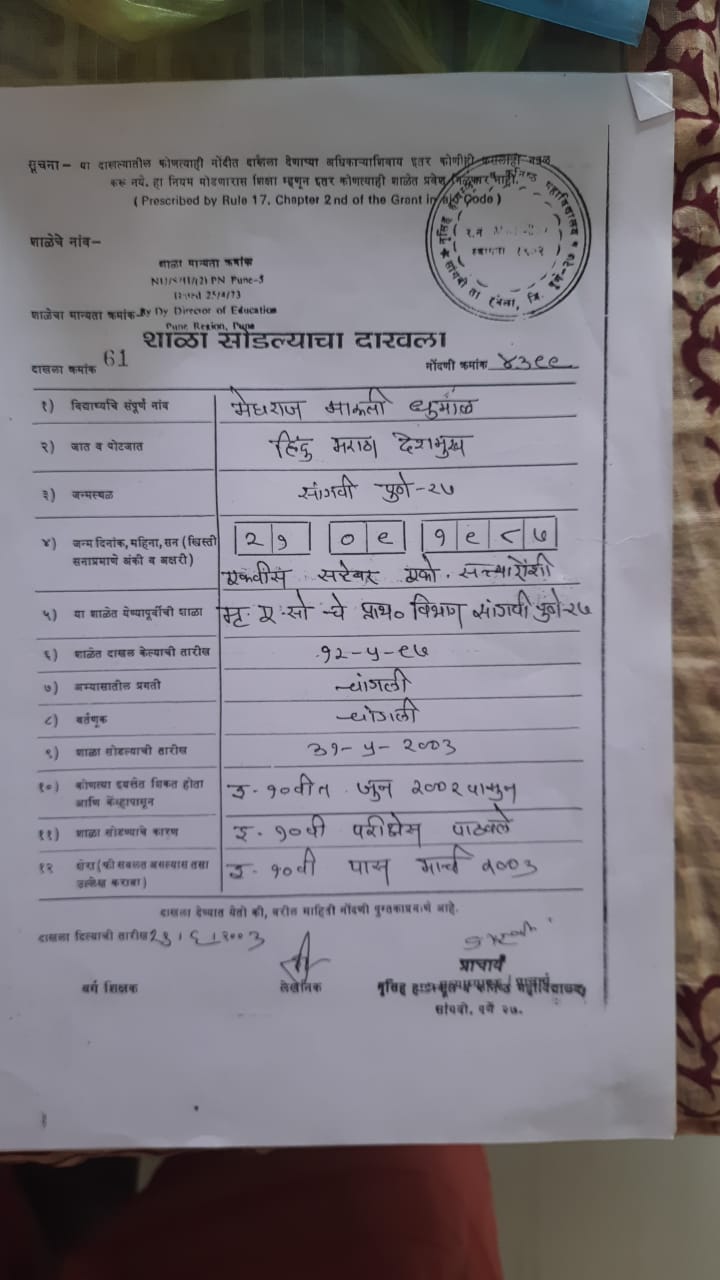 सूचना- या दाखल्यातील कोणत्याही नोंदीत दाखला देणाऱ्या अधिकाऱ्याशिवाय इतर कोणीही कसलाही बदल
करू नये. हा नियम मोडणारास शिक्षा म्हणून इतर कोणत्याही शाळेत प्रवेश मिळणार नाही.
( Prescribed by Rule 17. Chapter 2nd of the Grant in aid Code )
शाळेचे नांव-
शाळा मान्यता क्रमांक
PN Pune-5
25/4/73
शाळेचा मान्यता क्रमांक- By Dy Director of Education
Pune Region, Pune
शाळा सोडल्याचा दाखला
दाखला क्रमांक 61 नोंदणी क्रमांक ४३९९
१) विद्यार्थ्याचे संपूर्ण नांव मेघराज धुमाळ
२) जात व पोटजात हिंदु मराठा देशमुख
३) जन्मस्थळ सांगवी पुणे-२७
४) जन्म दिनांक, महिना, सन (ख्रिस्ती २१ ०९ १९८७
सनाप्रमाणे अंकी व अक्षरी) एकवीस सप्टेंबर एको. सत्त्यारोंशी
५) या शाळेत येण्यापूर्वीची शाळा नृ. ए. सो चे प्राथ० विभाग सांगवी पुणे-२७
६) शाळेत दाखल केल्याची तारीख १२-५-९७
७) अभ्यासातील प्रगती चांगली
८) वर्तणूक चांगली
९) शाळा सोडल्याची तारीख ३१-५-२००३
१०) कोणत्या इयत्तेत शिकत होता इ. १०वीत जुन २००२ पासुन
आणि केंव्हापासून
११) शाळा सोडण्याचे कारण इ. १०वी परीक्षेस पाठवले
१२ शेरा (फी सवलत असल्यास तसा इ. १०वी पास मार्च २००३
उल्लेख करावा)
दाखला देण्यात येतो की, वरील माहिती नोंदणी पुस्तकाप्रमाणे आहे.
दाखला दिल्याची तारीख २००३
प्राचार्य
वर्ग शिक्षक लेखनिक नृसिंह हायस्कूल व कनिष्ठ महाविद्यालय
सांगवी, पुणे २७.